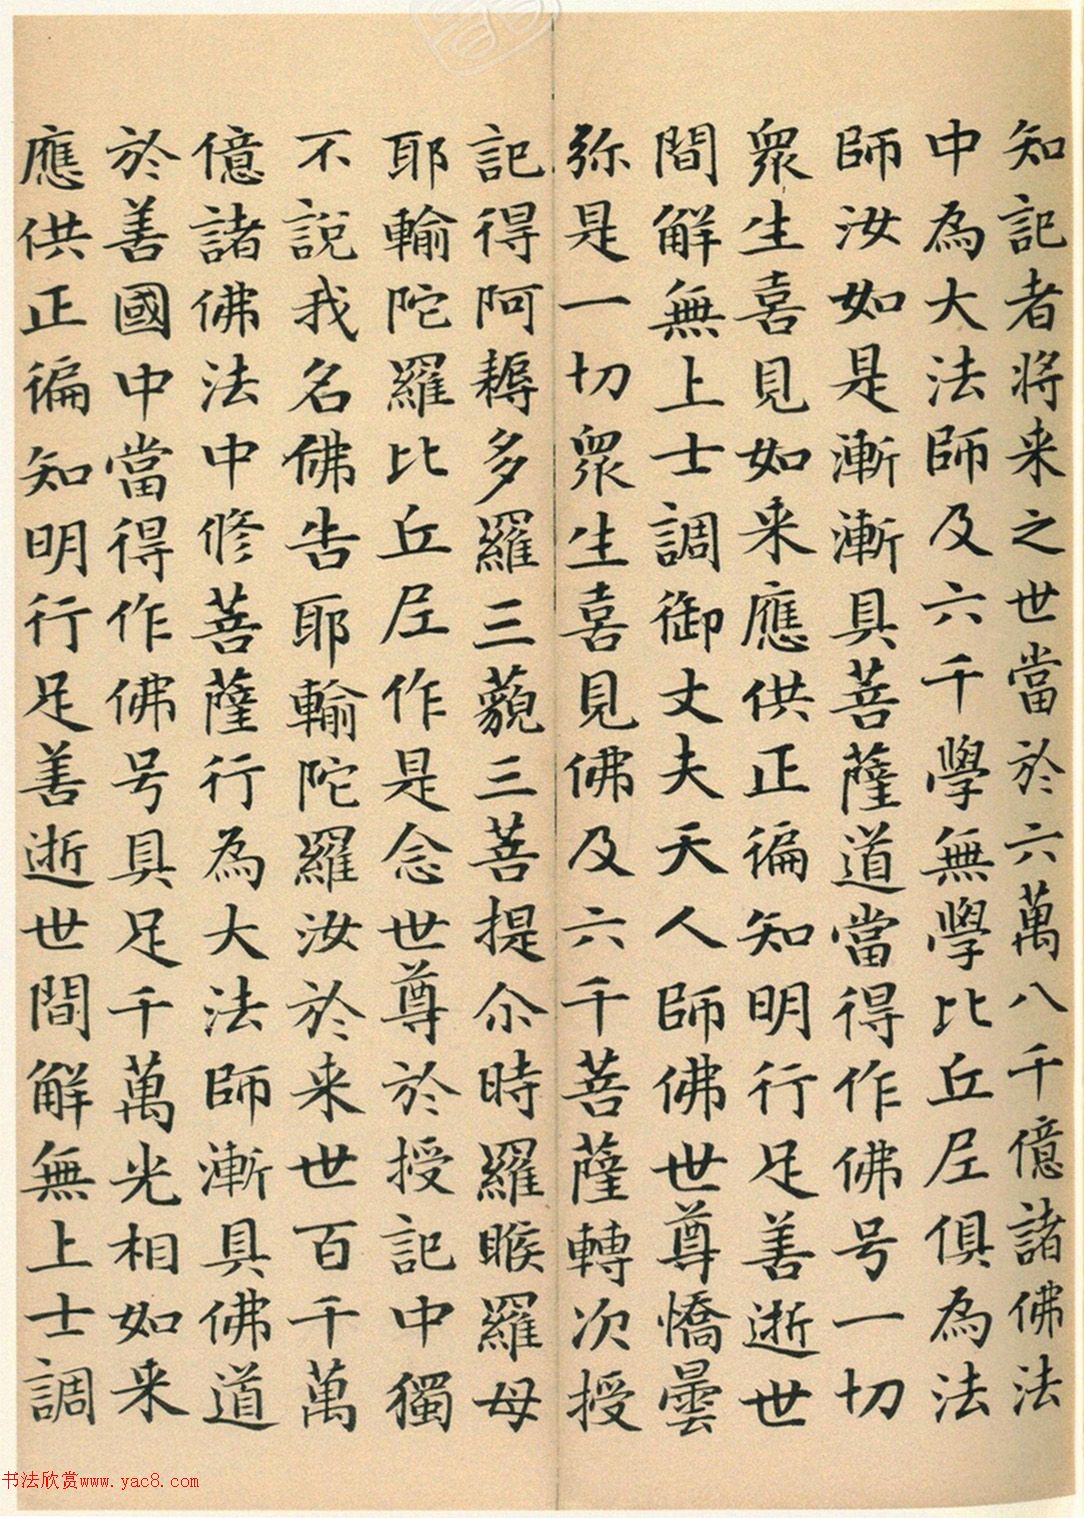 知記者將来之世當於六萬八千億諸佛法
中為大法師及六千學無學比丘尼俱為法
師汝如是漸漸具菩薩道當得作佛号一切
眾生喜見如来應供正徧知明行足善逝世
間解無上士調御丈夫天人師佛世尊憍曇
弥是一切眾生喜見佛及六千菩薩轉次授
記得阿耨多羅三藐三菩提尒時羅睺羅母
耶輸陀羅比丘尼作是念世尊於授記中獨
不說我名佛告耶輸陀羅汝於来世百千萬
億諸佛法中修菩薩行為大法師漸具佛道
於善國中當得作佛号具足千萬光相如来
應供正徧知明行足善逝世間解無上士調
书法欣赏www.yac8.com